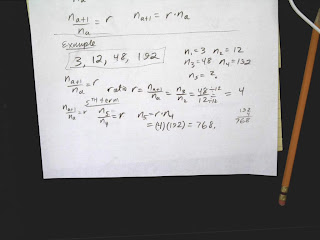 n_{a+1}/n_a = r    n_{a+1} = r · n_a
Example
3, 12, 48, 192
n₁ = 3 n₂ = 12
n₃ = 48 n₄ = 192
n₅ = ?
n_{a+1}/n_a = r ratio r = n_{a+1}/n_a = n₃/n₂ = 48÷12/12÷12 = 4
5TH term
n_{a+1}/n_a = r n₅/n₄ = r n₅ = r · n₄
= (4)(192) = 768.
192
768